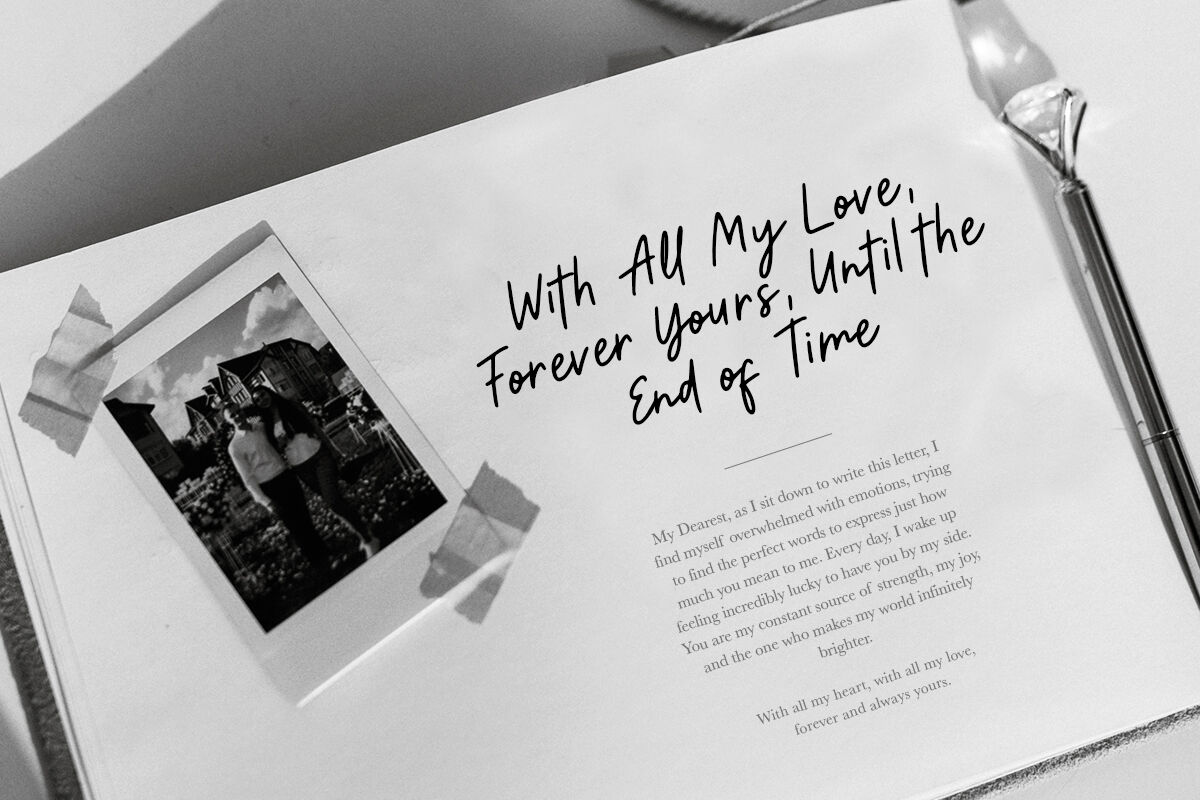 With All My Love,
Forever Yours, Until the
End of Time
My Dearest, as I sit down to write this letter, I
find myself overwhelmed with emotions, trying
to find the perfect words to express just how
much you mean to me. Every day, I wake up
feeling incredibly lucky to have you by my side.
You are my constant source of strength, my joy,
and the one who makes my world infinitely
brighter.
With all my heart, with all my love,
forever and always yours.